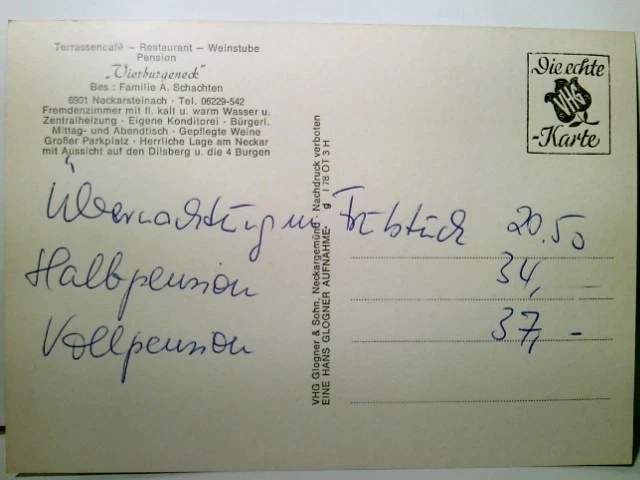 Terrassencafé — Restaurant — Weinstube
Pension
„Vierburgeneck"
Bes.: Familie A. Schachten
6901 Neckarsteinach · Tel. 06229-542
Fremdenzimmer mit fl. kalt u. warm Wasser u.
Zentralheizung · Eigene Konditorei · Bürgerl.
Mittag- und Abendtisch · Gepflegte Weine
Großer Parkplatz · Herrliche Lage am Neckar
mit Aussicht auf den Dilsberg u. die 4 Burgen
Die echte
VHG
-Karte
VHG Glogner & Sohn, Neckargemünd · Nachdruck verboten
EINE HANS GLOGNER AUFNAHME· g I 78 OT 3 H
Übernachtung m Frühstück 20.50
Halbpension 34, —
Vollpension 37, —